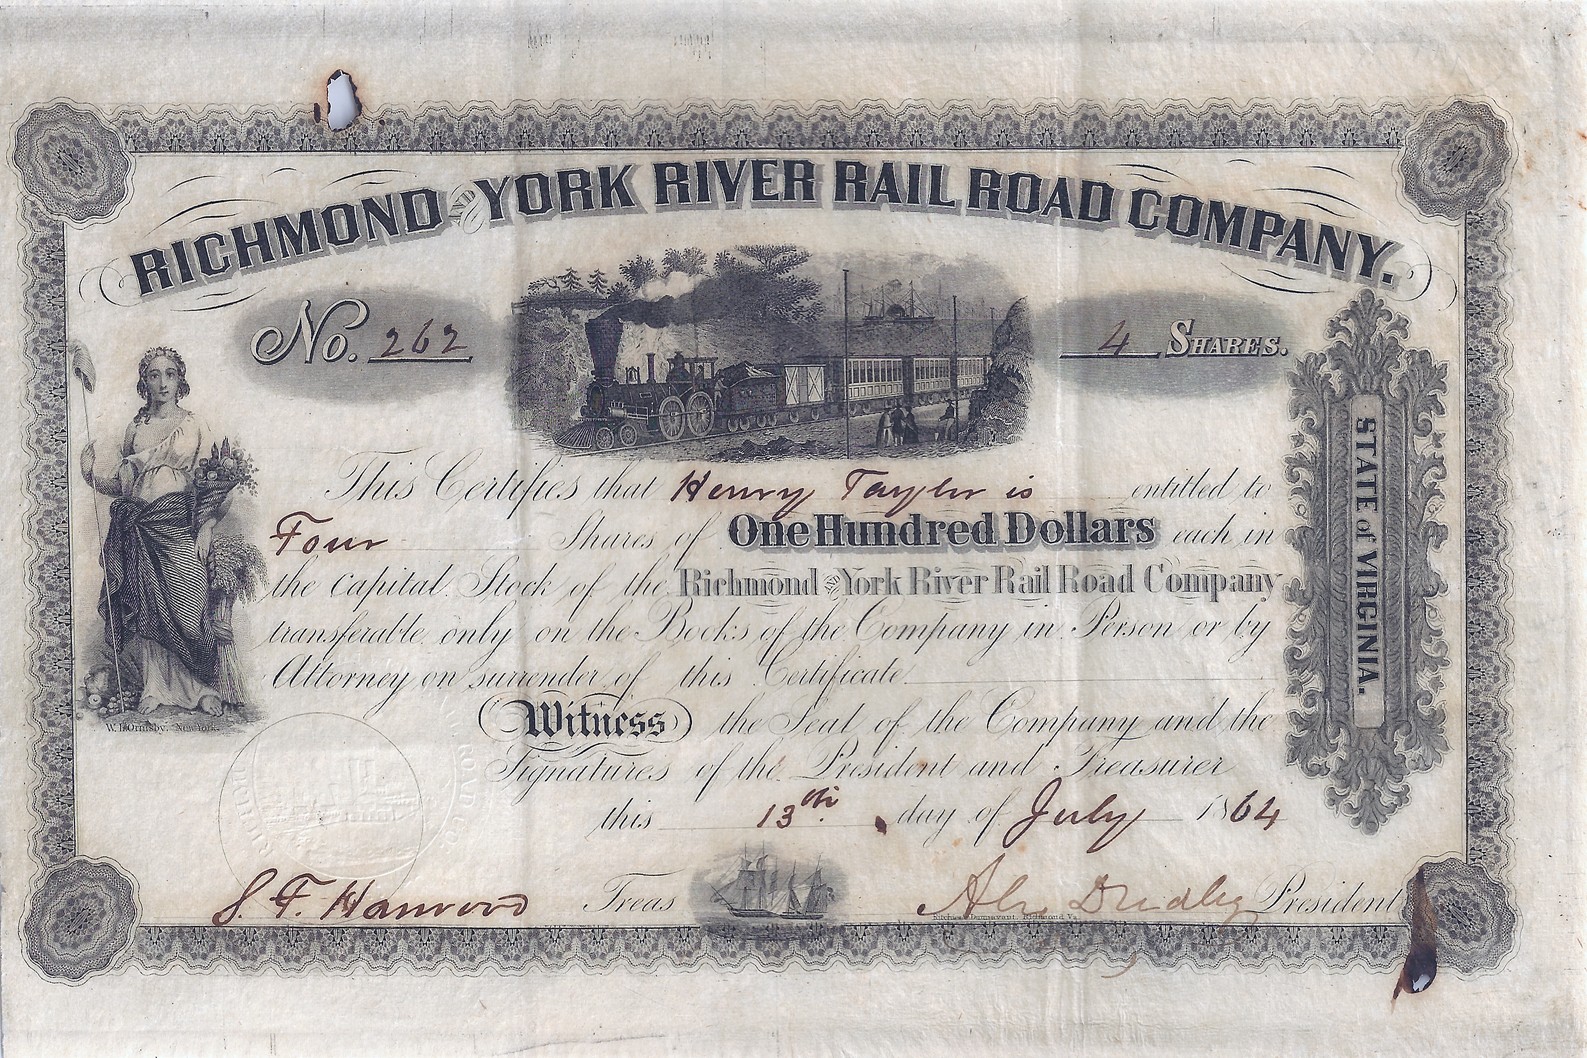 RICHMOND AND YORK RIVER RAIL ROAD COMPANY.
No. 262
4 SHARES.
This Certifies that Henry Taylor is entitled to
Four Shares of One Hundred Dollars each in
the Capital Stock of the Richmond AND York River Rail Road Company
transferable only on the Books of the Company in Person or by
Attorney on surrender of this Certificate
Witness the Seal of the Company and the
Signatures of the President and Treasurer
this 13th. day of July 1864
S. F. Harwood Treas
Dudley President
STATE of VIRGINIA.
W. L. Ormsby. New York.
Ritchies & Dunnavant. Richmond Va.
ROAD CO.